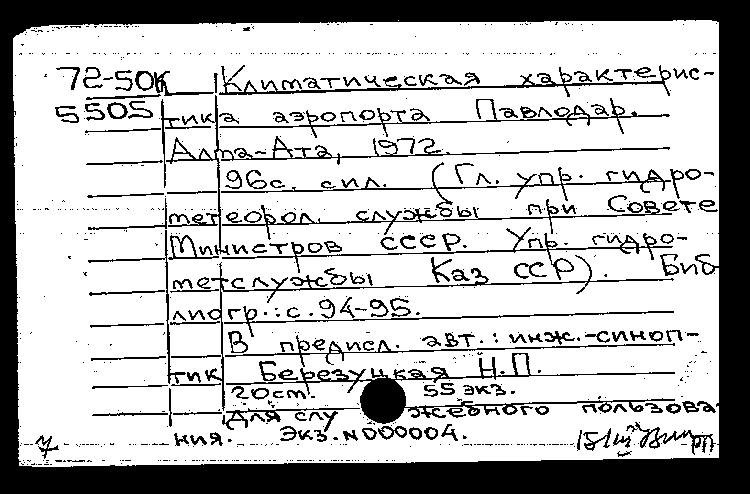 72-50К Климатическая характерис-
5505 тика аэропорта Павлодар.
Алма-Ата, 1972.
96с. с ил. (Гл. упр. гидро-
метеорол. службы при Совете
Министров СССР. Упр. гидро-
метслужбы Каз ССР). Биб
лиогр.: с. 94-95.
В предисл. авт.: инж.-синоп-
тик Березуцкая Н.П.
20ст. 55 экз.
Для служебного пользова
ния. Экз. N000004.